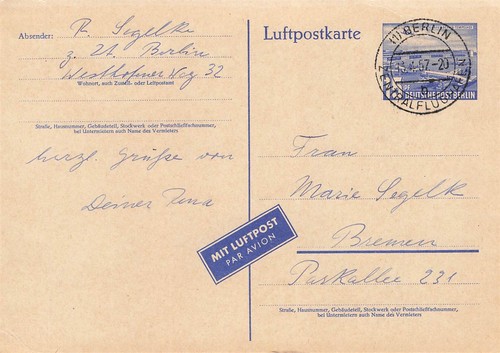 Absender: R. Segelke
z. Zt. Berlin
Westhofener Weg 32
Wohnort, auch Zustell- oder Leitpostamt
Straße, Hausnummer, Gebäudeteil, Stockwerk oder Postschließfachnummer,
bei Untermietern auch Name des Vermieters
herzl. Grüße von
Deiner
Luftpostkarte
(1) BERLIN
57-20
ZENTRALFLUGHAFEN
DEUTSCHE POST BERLIN
MIT LUFTPOST
PAR AVION
Frau
Marie Segelk
Bremen
Parkallee 231
Straße, Hausnummer, Gebäudeteil, Stockwerk oder Postschließfachnummer,
bei Untermietern auch Name des Vermieters